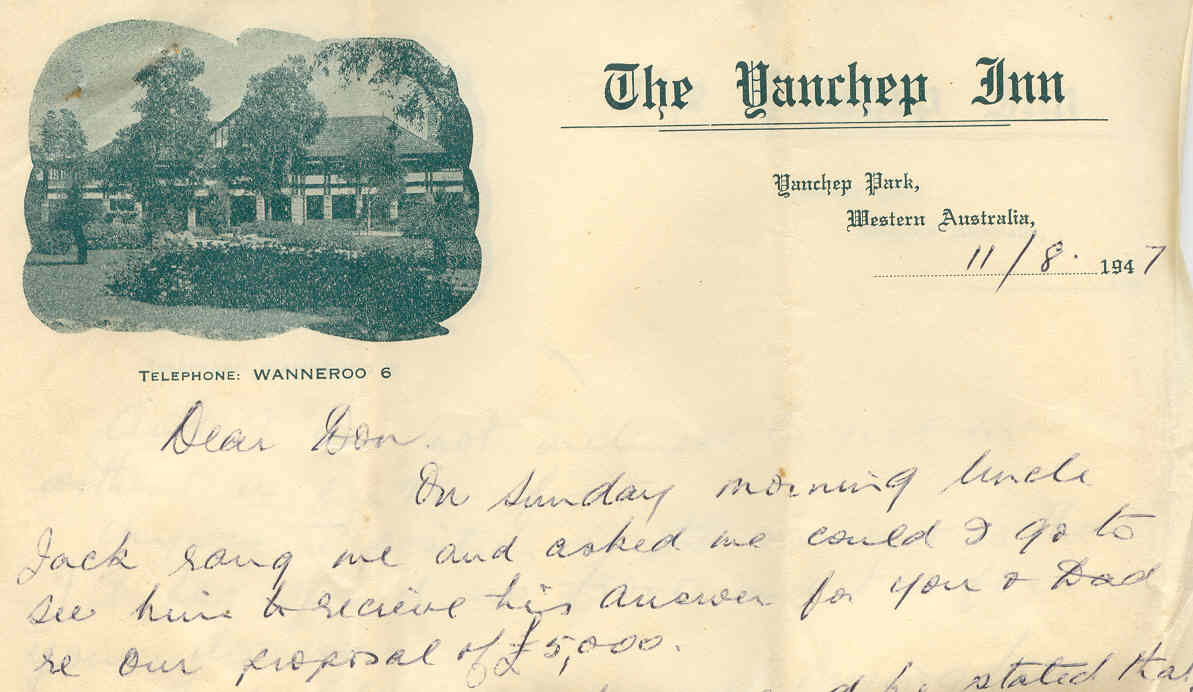 The Yanchep Inn
Yanchep Park,
Western Australia,
11/8. 1947
TELEPHONE: WANNEROO 6
Dear
On Sunday morning Uncle
Jack rang me and asked me could I go to
see him to recieve his answer for you & Dad
re our proposal of £5,000.
he stated that